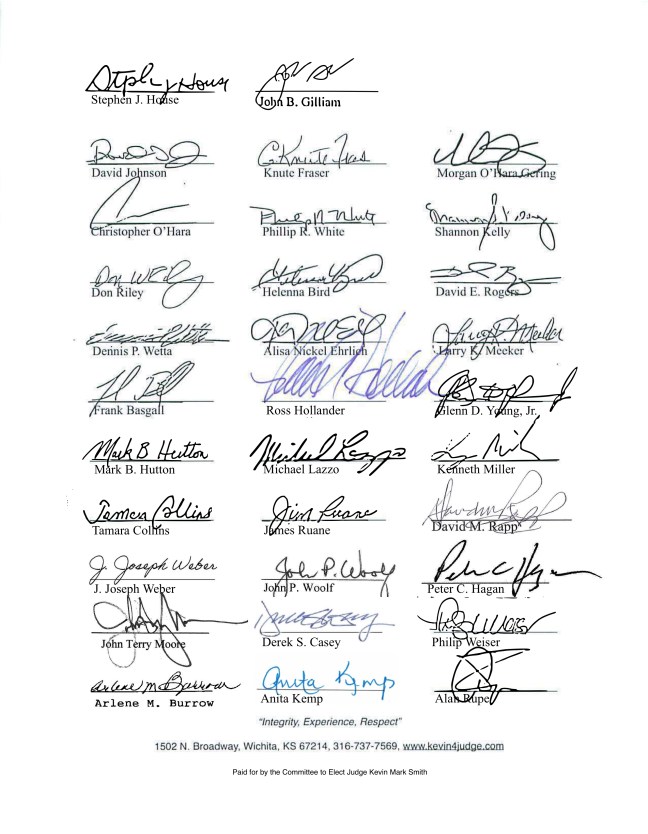 Stephen J. House John B. Gilliam
David Johnson Knute Fraser Morgan O'Hara Gering
Christopher O'Hara Phillip R. White Shannon Kelly
Don Riley Helenna Bird David E. Rogers
Dennis P. Wetta Alisa Nickel Ehrlich Larry K. Meeker
Frank Basgall Ross Hollander Glenn D. Young, Jr.
Mark B Hutton
Mark B. Hutton Michael Lazzo Kenneth Miller
Tamara Collins Jim Ruane
Tamara Collins James Ruane David M. Rapp
J. Joseph Weber John P. Woolf
J. Joseph Weber John P. Woolf Peter C. Hagan
John Terry Moore Derek S. Casey Philip Weiser
Arlene M Burrow Anita Kemp
Arlene M. Burrow Anita Kemp Alan Rupe
"Integrity, Experience, Respect"
1502 N. Broadway, Wichita, KS 67214, 316-737-7569, www.kevin4judge.com
Paid for by the Committee to Elect Judge Kevin Mark Smith